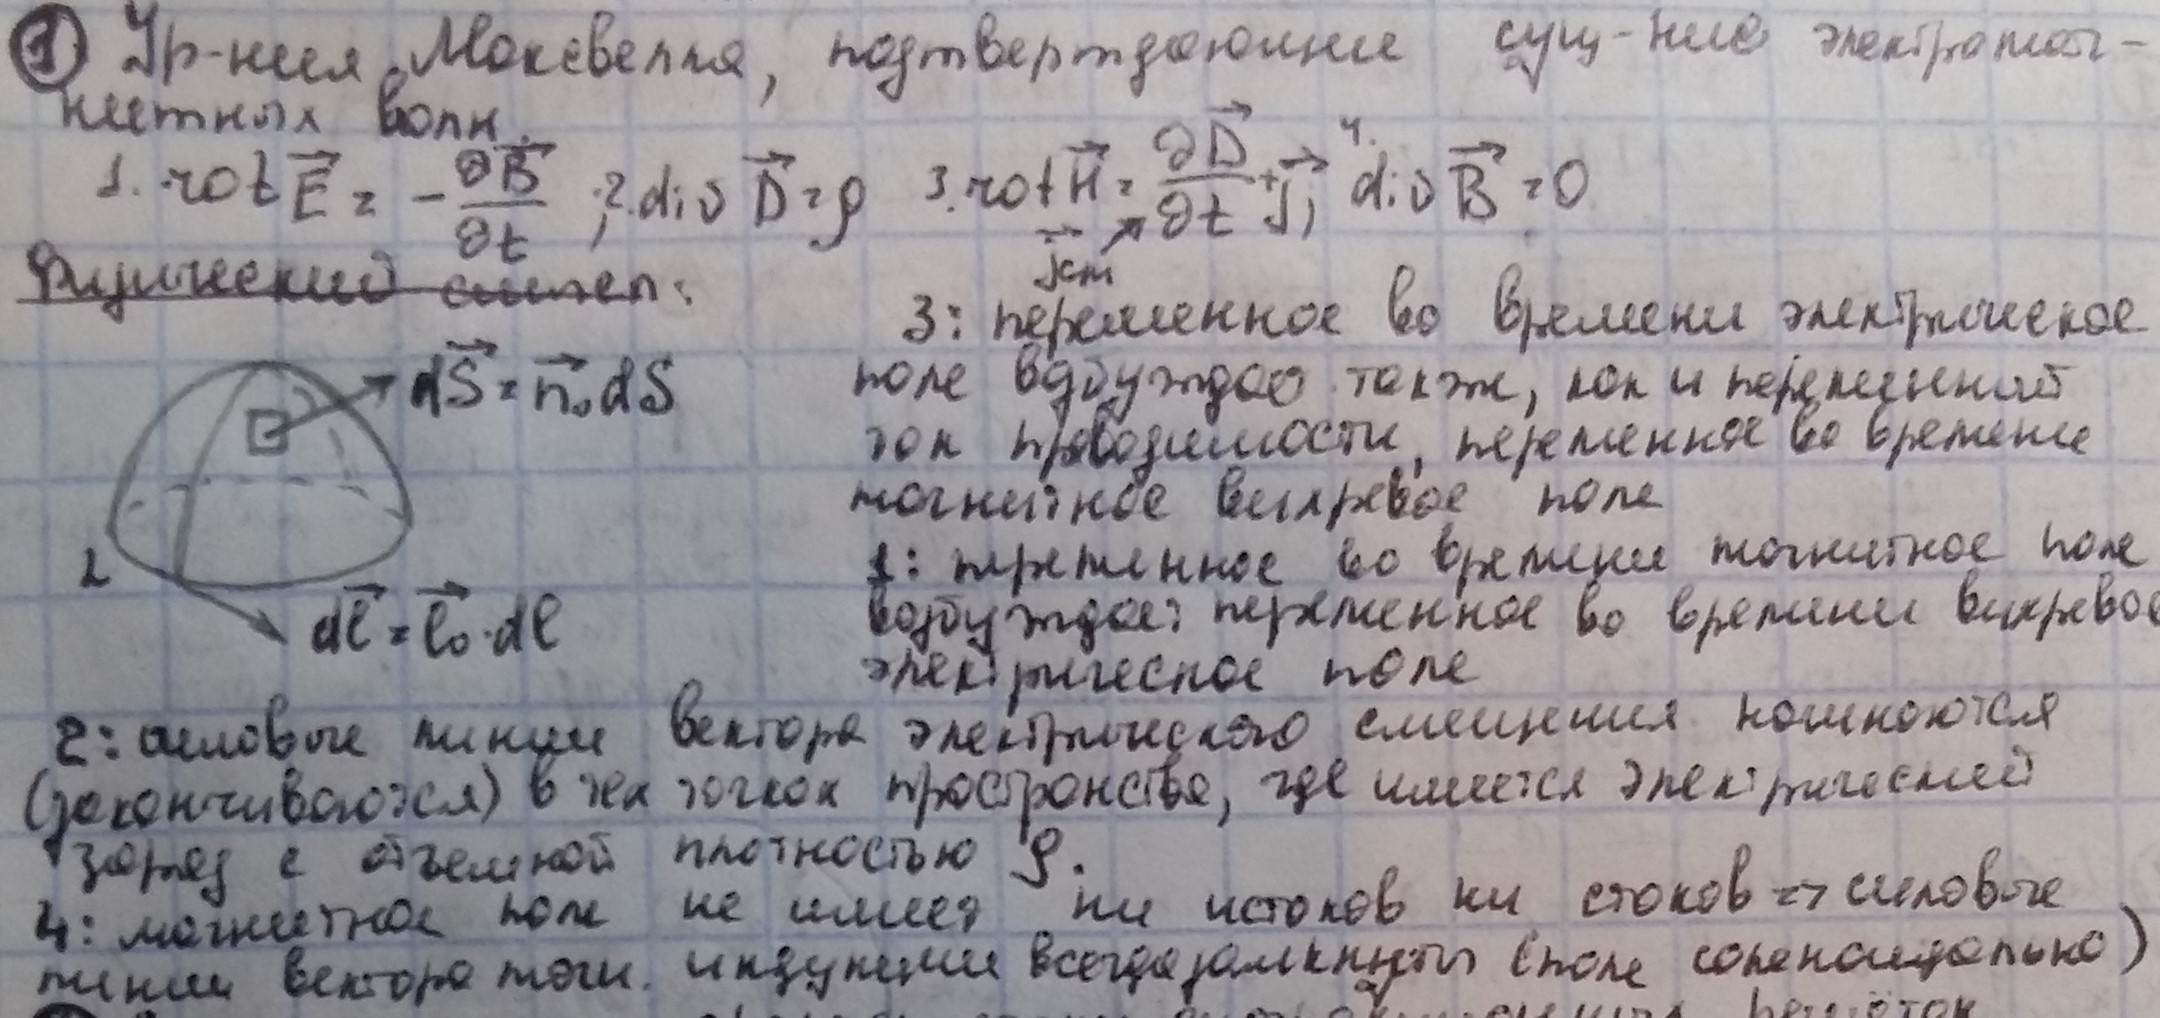 1 Ур-ния Максвелла, подтверждающие сущ-ние электромаг-
нитных волн.
1. rot E⃗ = - ∂B⃗/∂t ; 2. div D⃗ = ρ 3. rot H⃗ = ∂D⃗/∂t + j⃗; 4. div B⃗ = 0
j⃗см
Физический смысл:
dS⃗ = n⃗₀ dS
L
dl⃗ = l⃗₀ · dl
3: переменное во времени электрическое
поле возбуждает также, как и переменный
ток проводимости, переменное во времени
магнитное вихревое поле
1: переменное во времени магнитное поле
возбуждает переменное во времени вихревое
электрическое поле
2: силовые линии вектора электрического смещения начинаются
(заканчиваются) в тех точках пространства, где имеется электрический
заряд с объемной плотностью ρ.
4: магнитное поле не имеет ни истоков ни стоков => силовые
линии вектора магн. индукции всегда замкнуты (поле соленоидально)
решёток